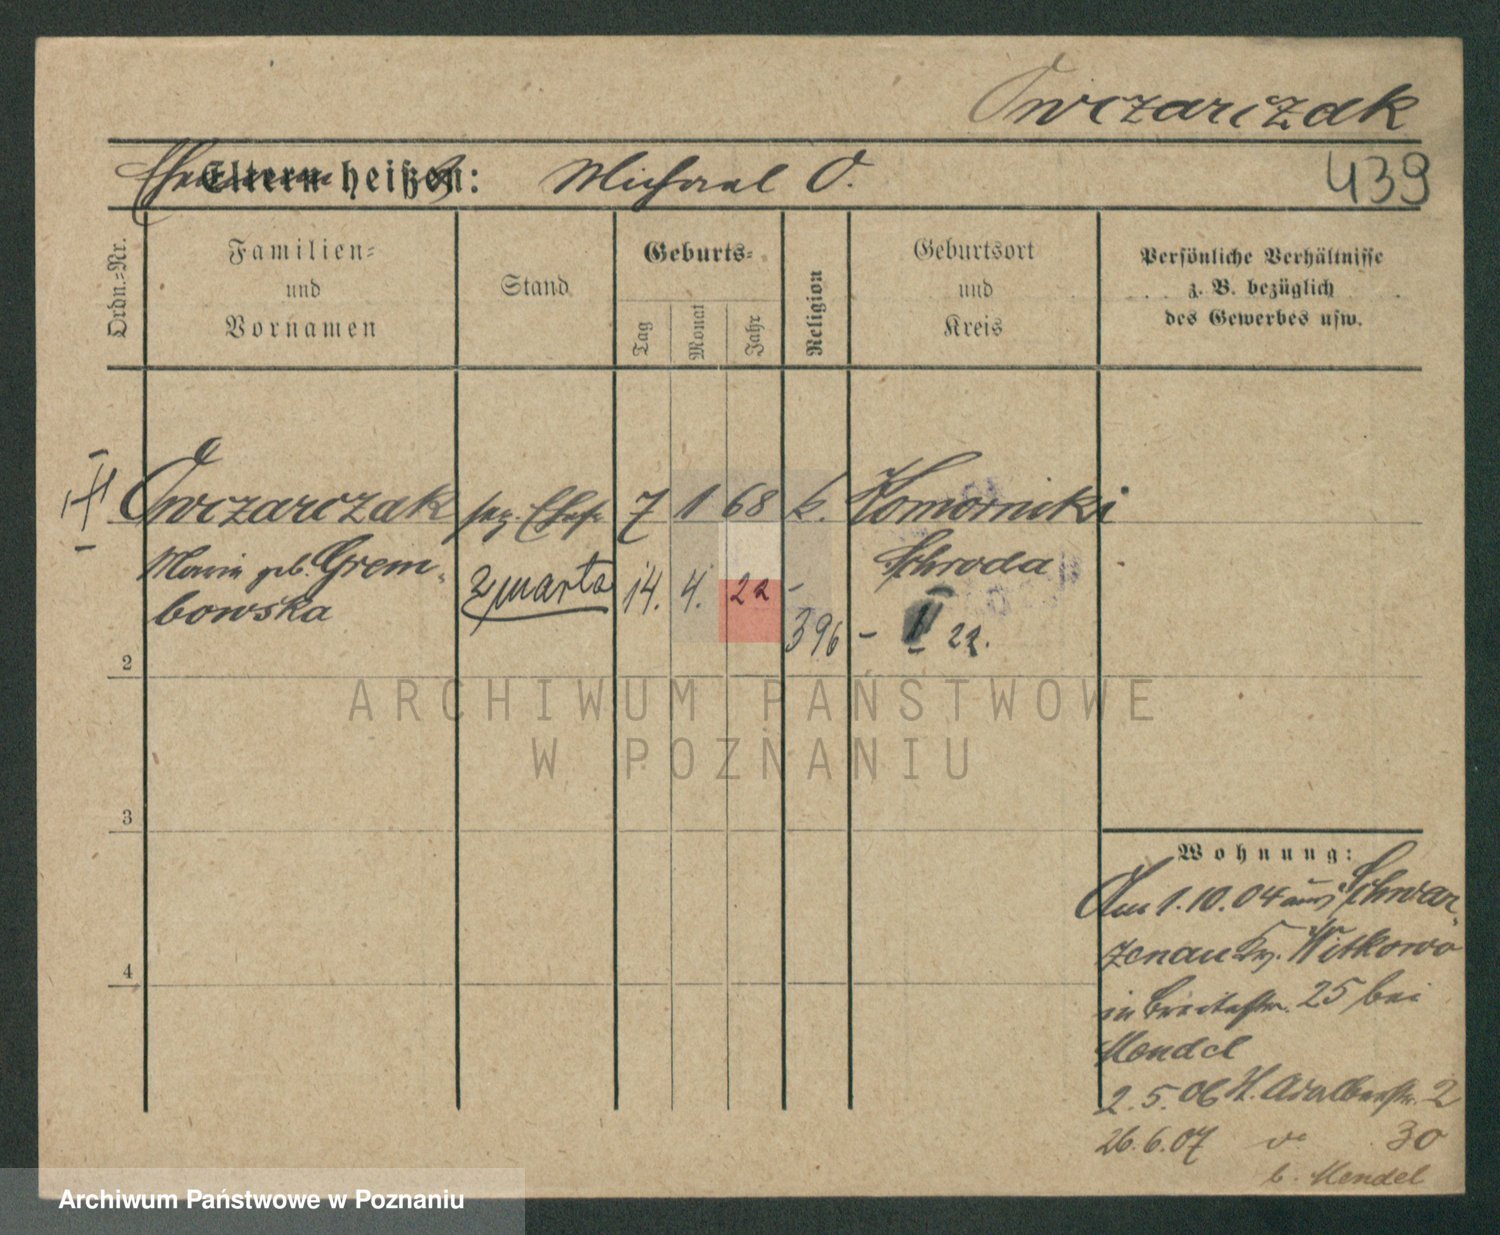 Owczarczak
Eltern heißen: Michael O.
439
Ordn.=Nr.
Familien=
und
Vornamen
Stand
Geburts=
Tag
Monat
Jahr
Religion
Geburtsort
und
Kreis
Persönliche Verhältnisse
z. B. bezüglich
des Gewerbes usw.
Owczarczak
7 1 68 k. Komorniki
Maria geb. Grem-
bowska
Schroda
zmarła 14. 4. 22 -
396 - II 22.
2
3
4
Wohnung:
Am 1.10.04 aus Schwar-
zenau Kr. Witkowo
in Breitestr. 25 bei
Mendel
2.5.06 St. Adalbertstr. 2
26.6.07 do 30
b. Mendel
ARCHIWUM PAŃSTWOWE
W POZNANIU
Archiwum Państwowe w Poznaniu